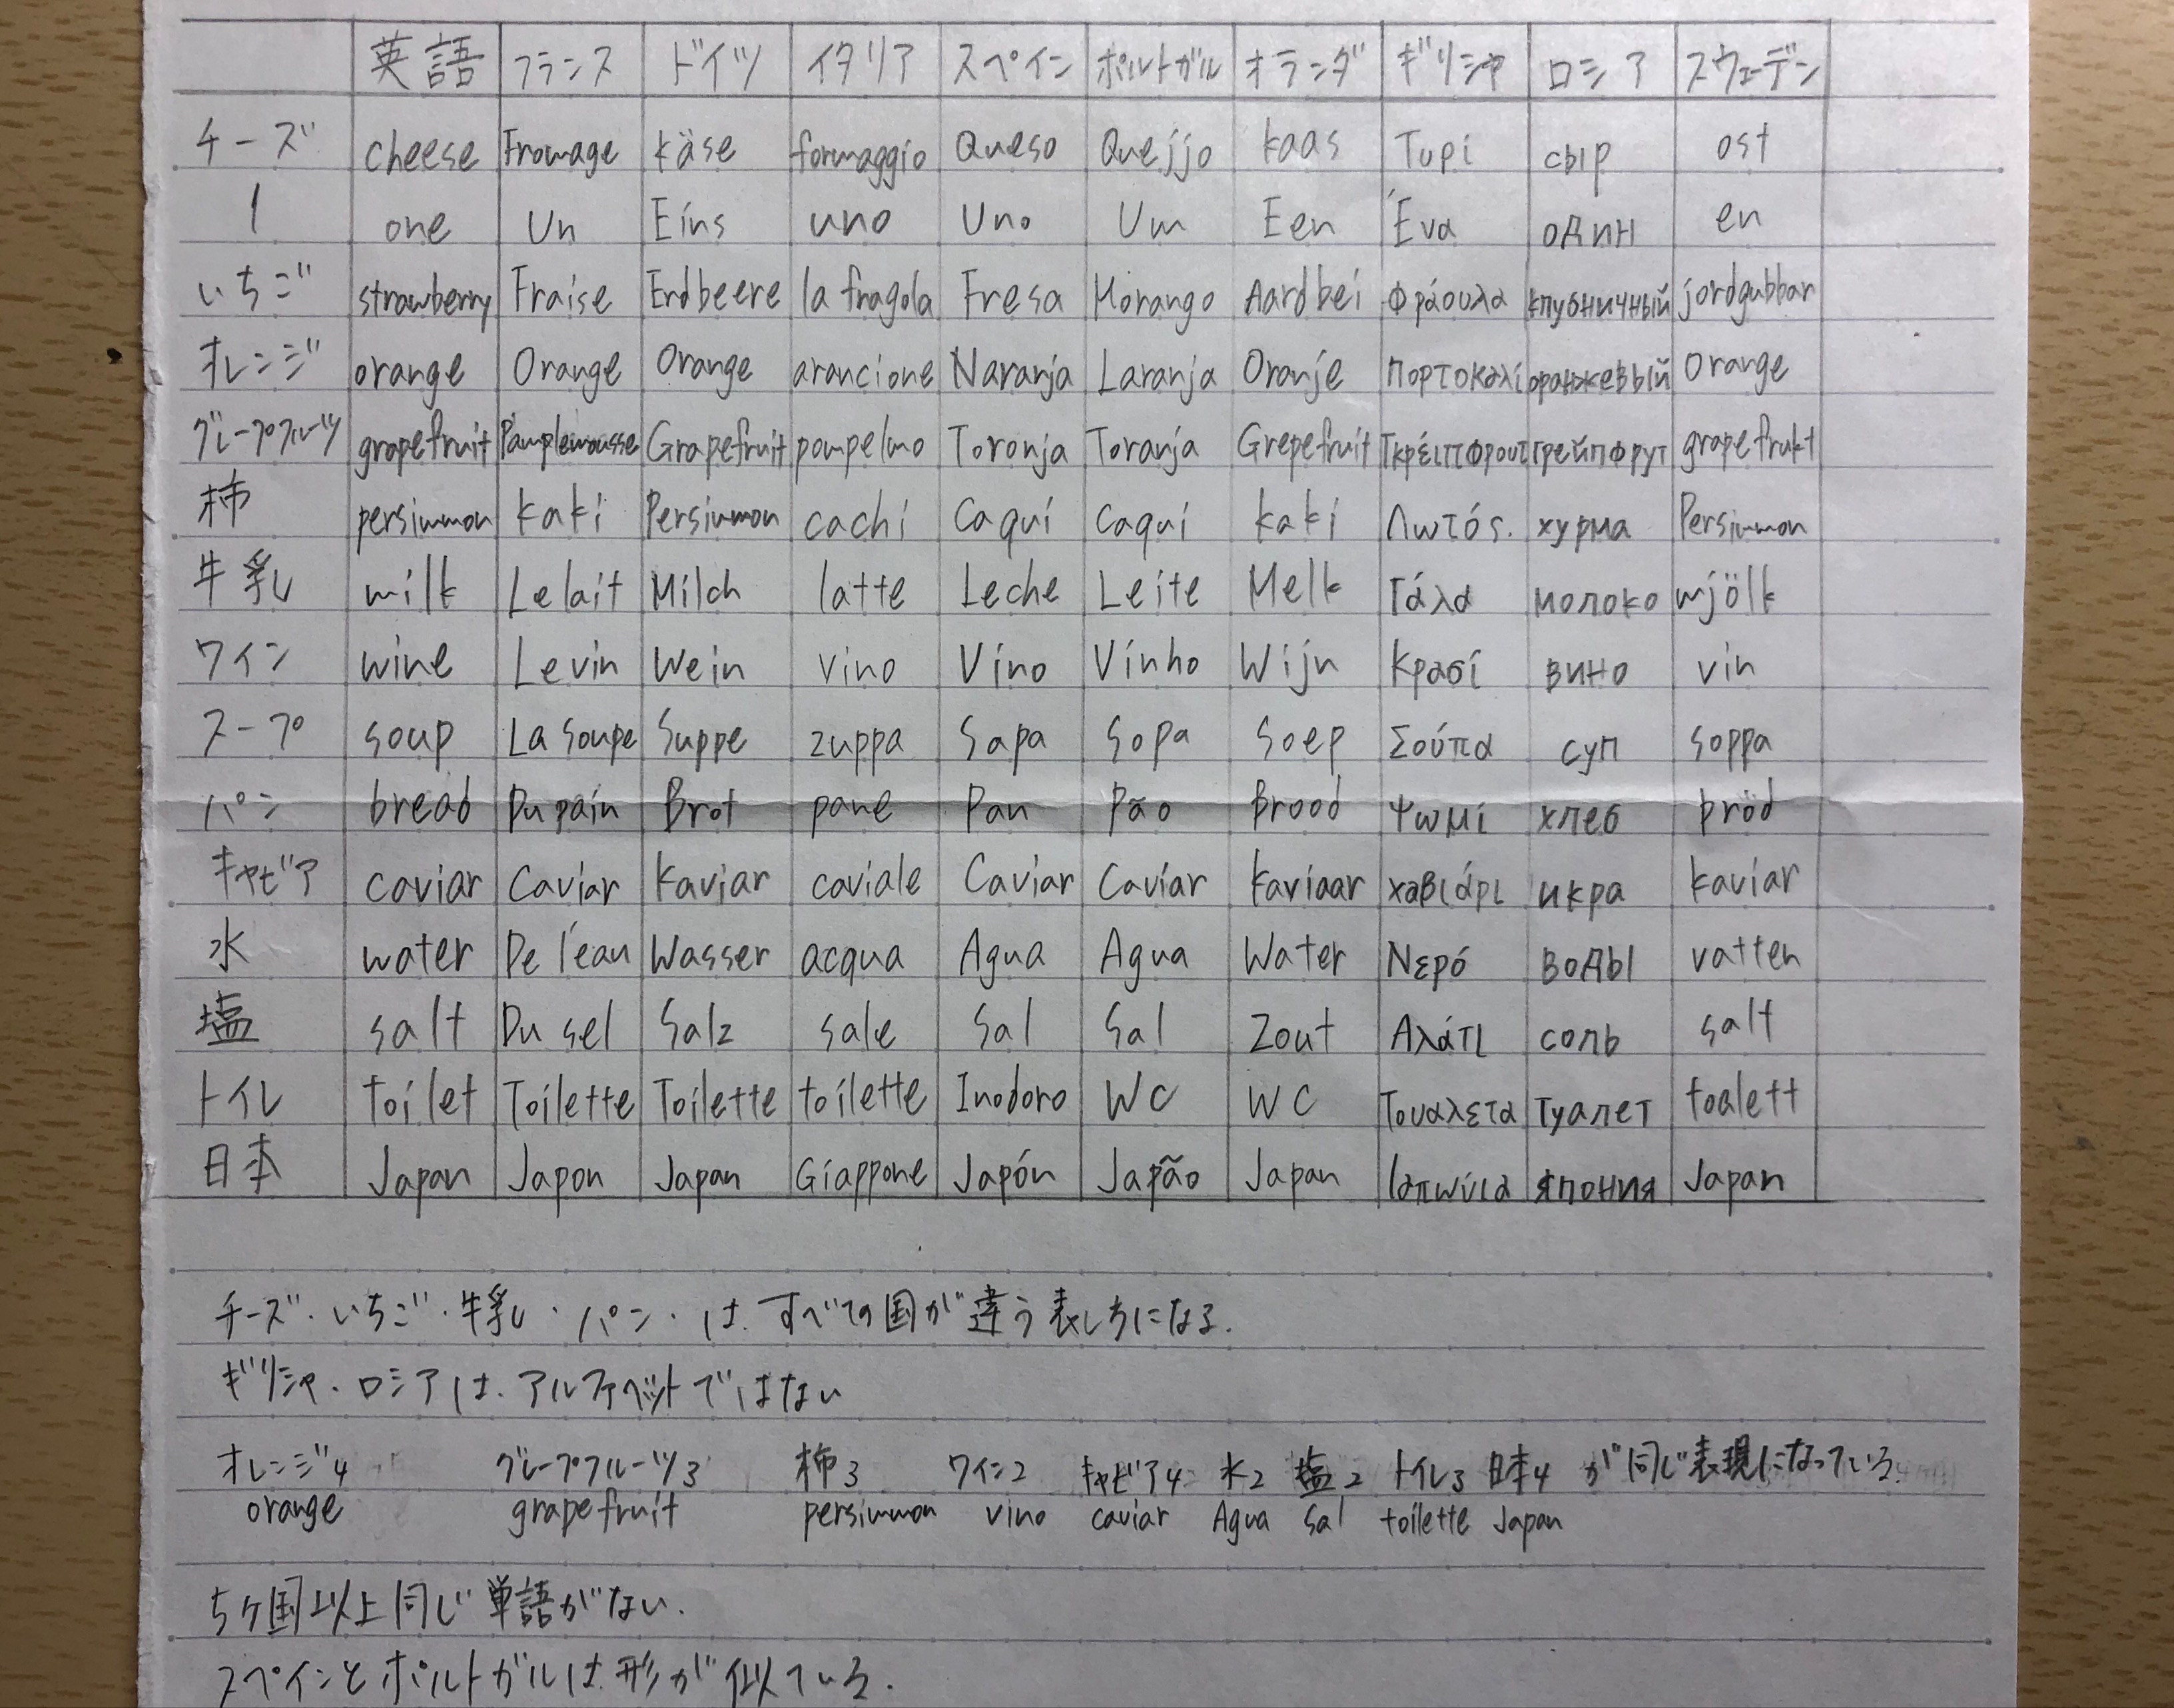 英語 フランス ドイツ イタリア スペイン ポルトガル オランダ ギリシャ ロシア スウェーデン
チーズ cheese Fromage käse formaggio Queso Quejjo kaas Τυρί сыр ost
1 one Un Eins uno Uno Um Een Ένα один en
いちご strawberry Fraise Erdbeere la fragola Fresa Morango Aardbei Φράουλα клубничный jordgubbar
オレンジ orange Orange Orange arancione Naranja Laranja Oranje Πορτοκαλί оранжевый Orange
グレープフルーツ grapefruit Pamplemousse Grapefruit pompelmo Toronja Toranja Grepefruit Γκρέιπφρουτ грейпфрут grapefrukt
柿 persimmon kaki Persimmon cachi Caqui Caqui kaki Λωτός. хурма Persimmon
牛乳 milk Le lait Milch latte Leche Leite Melk Γάλα молоко mjölk
ワイン wine Le vin Wein vino Vino Vinho Wijn Κρασί вино vin
スープ soup La Soupe Suppe zuppa Sapa Sopa Soep Σούπα суп soppa
パン bread Du pain Brot pane Pan Pão Brood Ψωμί хлеб bröd
キャビア caviar Caviar kaviar caviale Caviar Caviar kaviaar χαβιάρι икра kaviar
水 water De l'eau Wasser acqua Agua Agua Water Νερό воды vatten
塩 salt Du sel Salz sale Sal Sal Zout Αλάτι соль salt
トイレ toilet Toilette Toilette toilette Inodoro WC WC Τουαλετα туалет toalett
日本 Japan Japon Japan Giappone Japón Japão Japan Ιαπωνία япония Japan
チーズ・いちご・牛乳・パン・は、すべての国が違う表し方になる.
ギリシャ・ロシアは、アルファベットではない
オレンジ4 グレープフルーツ3 柿3 ワイン2 キャビア4 水2 塩2 トイレ3 日本4 が同じ表現になっている.
orange grapefruit persimmon vino caviar Agua Sal toilette Japan
5ヶ国以上同じ単語がない.
スペインとポルトガルは形が似ている.